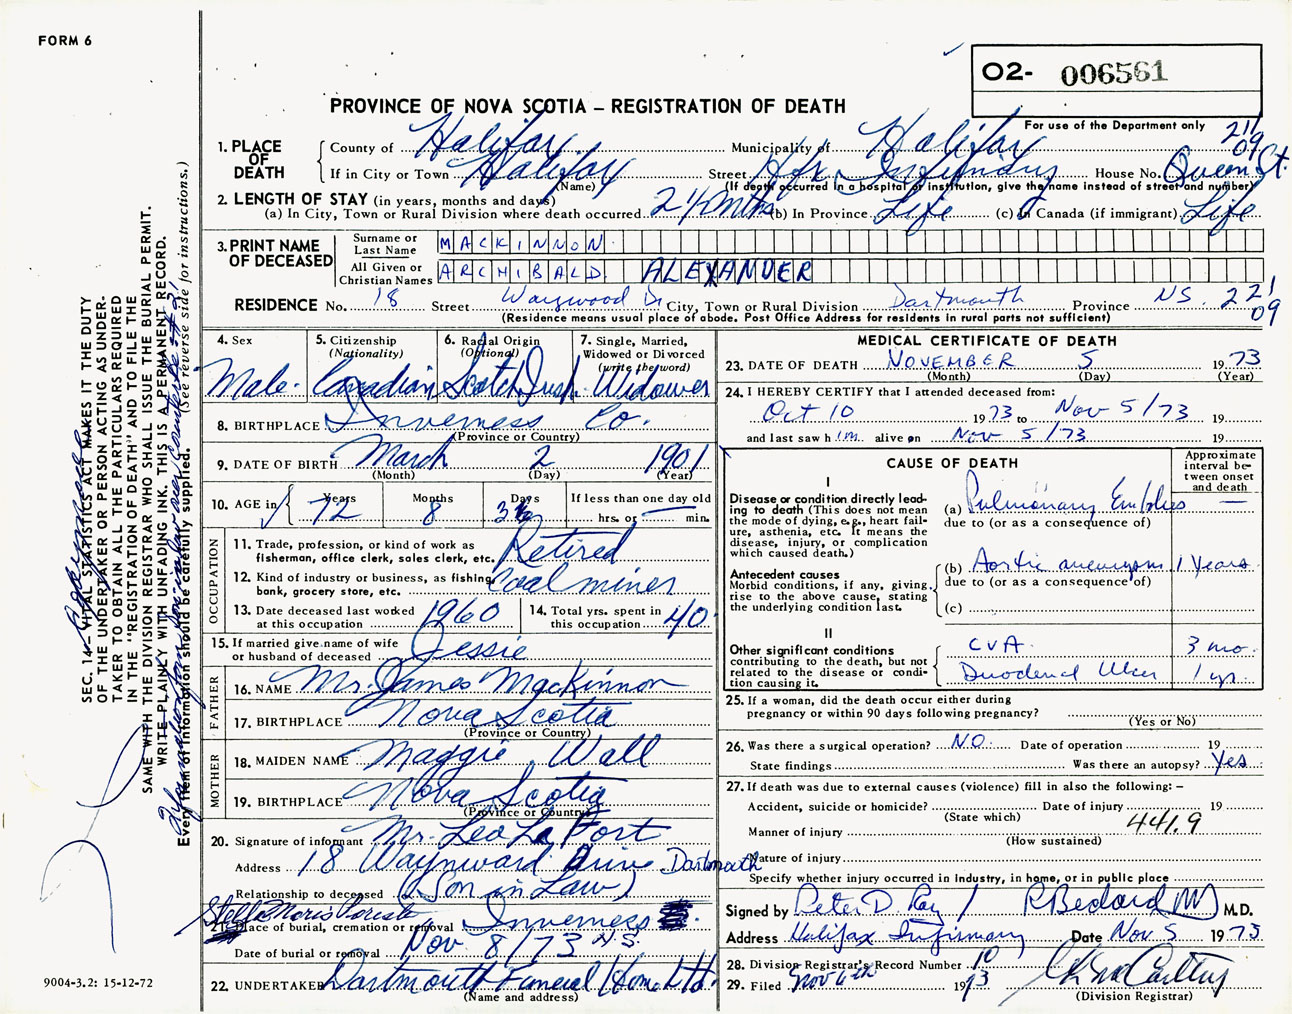 FORM 6
O2- 006561
PROVINCE OF NOVA SCOTIA – REGISTRATION OF DEATH
For use of the Department only
211
09
1. PLACE OF DEATH
County of Halifax Municipality of Halifax
If in City or Town Halifax Street Hfx Infirmary House No. Queen St.
(Name) (If death occurred in a hospital or institution, give the name instead of street and number)
2. LENGTH OF STAY (in years, months and days)
(a) In City, Town or Rural Division where death occurred 2½ mths (b) In Province Life (c) In Canada (if immigrant) Life
3. PRINT NAME OF DECEASED
Surname or Last Name MACKINNON
All Given or Christian Names ARCHIBALD ALEXANDER
RESIDENCE No. 18 Street Dr City, Town or Rural Division Dartmouth Province NS. 221
09
(Residence means usual place of abode. Post Office Address for residents in rural parts not sufficient)
4. Sex
Male.
5. Citizenship (Nationality)
Canadian
6. Racial Origin (Optional)
Scotch Irish
7. Single, Married, Widowed or Divorced (write the word)
Widower
8. BIRTHPLACE Inverness Co.
(Province or Country)
9. DATE OF BIRTH March 2 1901
(Month) (Day) (Year)
10. AGE in Years 72 Months 8 Days 3 If less than one day old
hrs. or min.
OCCUPATION
11. Trade, profession, or kind of work as fisherman, office clerk, sales clerk, etc. Retired
12. Kind of industry or business, as fishing, bank, grocery store, etc. Coal miner
13. Date deceased last worked at this occupation 1960
14. Total yrs. spent in this occupation 40
15. If married give name of wife or husband of deceased Jessie
FATHER
16. NAME Mr. James MacKinnon
17. BIRTHPLACE Nova Scotia
(Province or Country)
MOTHER
18. MAIDEN NAME Maggie Wall
19. BIRTHPLACE Nova Scotia
(Province or Country)
20. Signature of informant Mr. Leo La Fort
Address 18 Drive Dartmouth
Relationship to deceased (Son in Law)
Stella Maris
21. Place of burial, cremation or removal Inverness N.S.
Date of burial or removal Nov 8/73
22. UNDERTAKER Dartmouth Funeral Home Ltd.
(Name and address)
MEDICAL CERTIFICATE OF DEATH
23. DATE OF DEATH NOVEMBER 5 1973
(Month) (Day) (Year)
24. I HEREBY CERTIFY that I attended deceased from:
Oct 10 1973 to Nov 5/73 19
and last saw him alive on Nov 5/73 19
CAUSE OF DEATH
Approximate interval between onset and death
I
Disease or condition directly leading to death (This does not mean the mode of dying, e.g., heart failure, asthenia, etc. It means the disease, injury, or complication which caused death.)
(a) Pulmonary Embolus —
due to (or as a consequence of)
Antecedent causes
Morbid conditions, if any, giving rise to the above cause, stating the underlying condition last.
(b) Aortic aneurysm 1 years
due to (or as a consequence of)
(c)
II
Other significant conditions
contributing to the death, but not related to the disease or condition causing it.
CVA 3 mo
Duodenal Ulcer 1 yr.
25. If a woman, did the death occur either during pregnancy or within 90 days following pregnancy?
(Yes or No)
26. Was there a surgical operation? NO. Date of operation 19
State findings Was there an autopsy? Yes
27. If death was due to external causes (violence) fill in also the following: –
Accident, suicide or homicide? Date of injury 19
(State which)
441.9
Manner of injury
(How sustained)
Nature of injury
Specify whether injury occurred in industry, in home, or in public place
Signed by Peter D. Ray / R Bedard MD M.D.
Address Halifax Infirmary Date Nov 5 1973
28. Division Registrar's Record Number 10
29. Filed Nov 6th 1973
(Division Registrar)
SEC. 14 – VITAL STATISTICS ACT MAKES IT THE DUTY
OF THE UNDERTAKER OR PERSON ACTING AS UNDER-
TAKER TO OBTAIN ALL THE PARTICULARS REQUIRED
IN THE "REGISTRATION OF DEATH" AND TO FILE THE
SAME WITH THE DIVISION REGISTRAR WHO SHALL ISSUE THE BURIAL PERMIT.
WRITE PLAINLY WITH UNFADING INK. THIS IS A PERMANENT RECORD.
Every item of information should be carefully supplied. (See reverse side for instructions.)
9004-3.2: 15-12-72